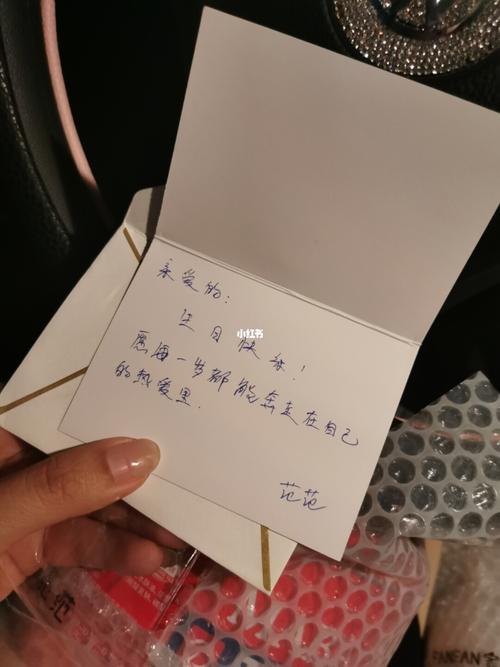 亲爱的:
生日快乐!
愿每一岁都能奔走在自己
的热爱里.
范范
小红书
范
FANFAN